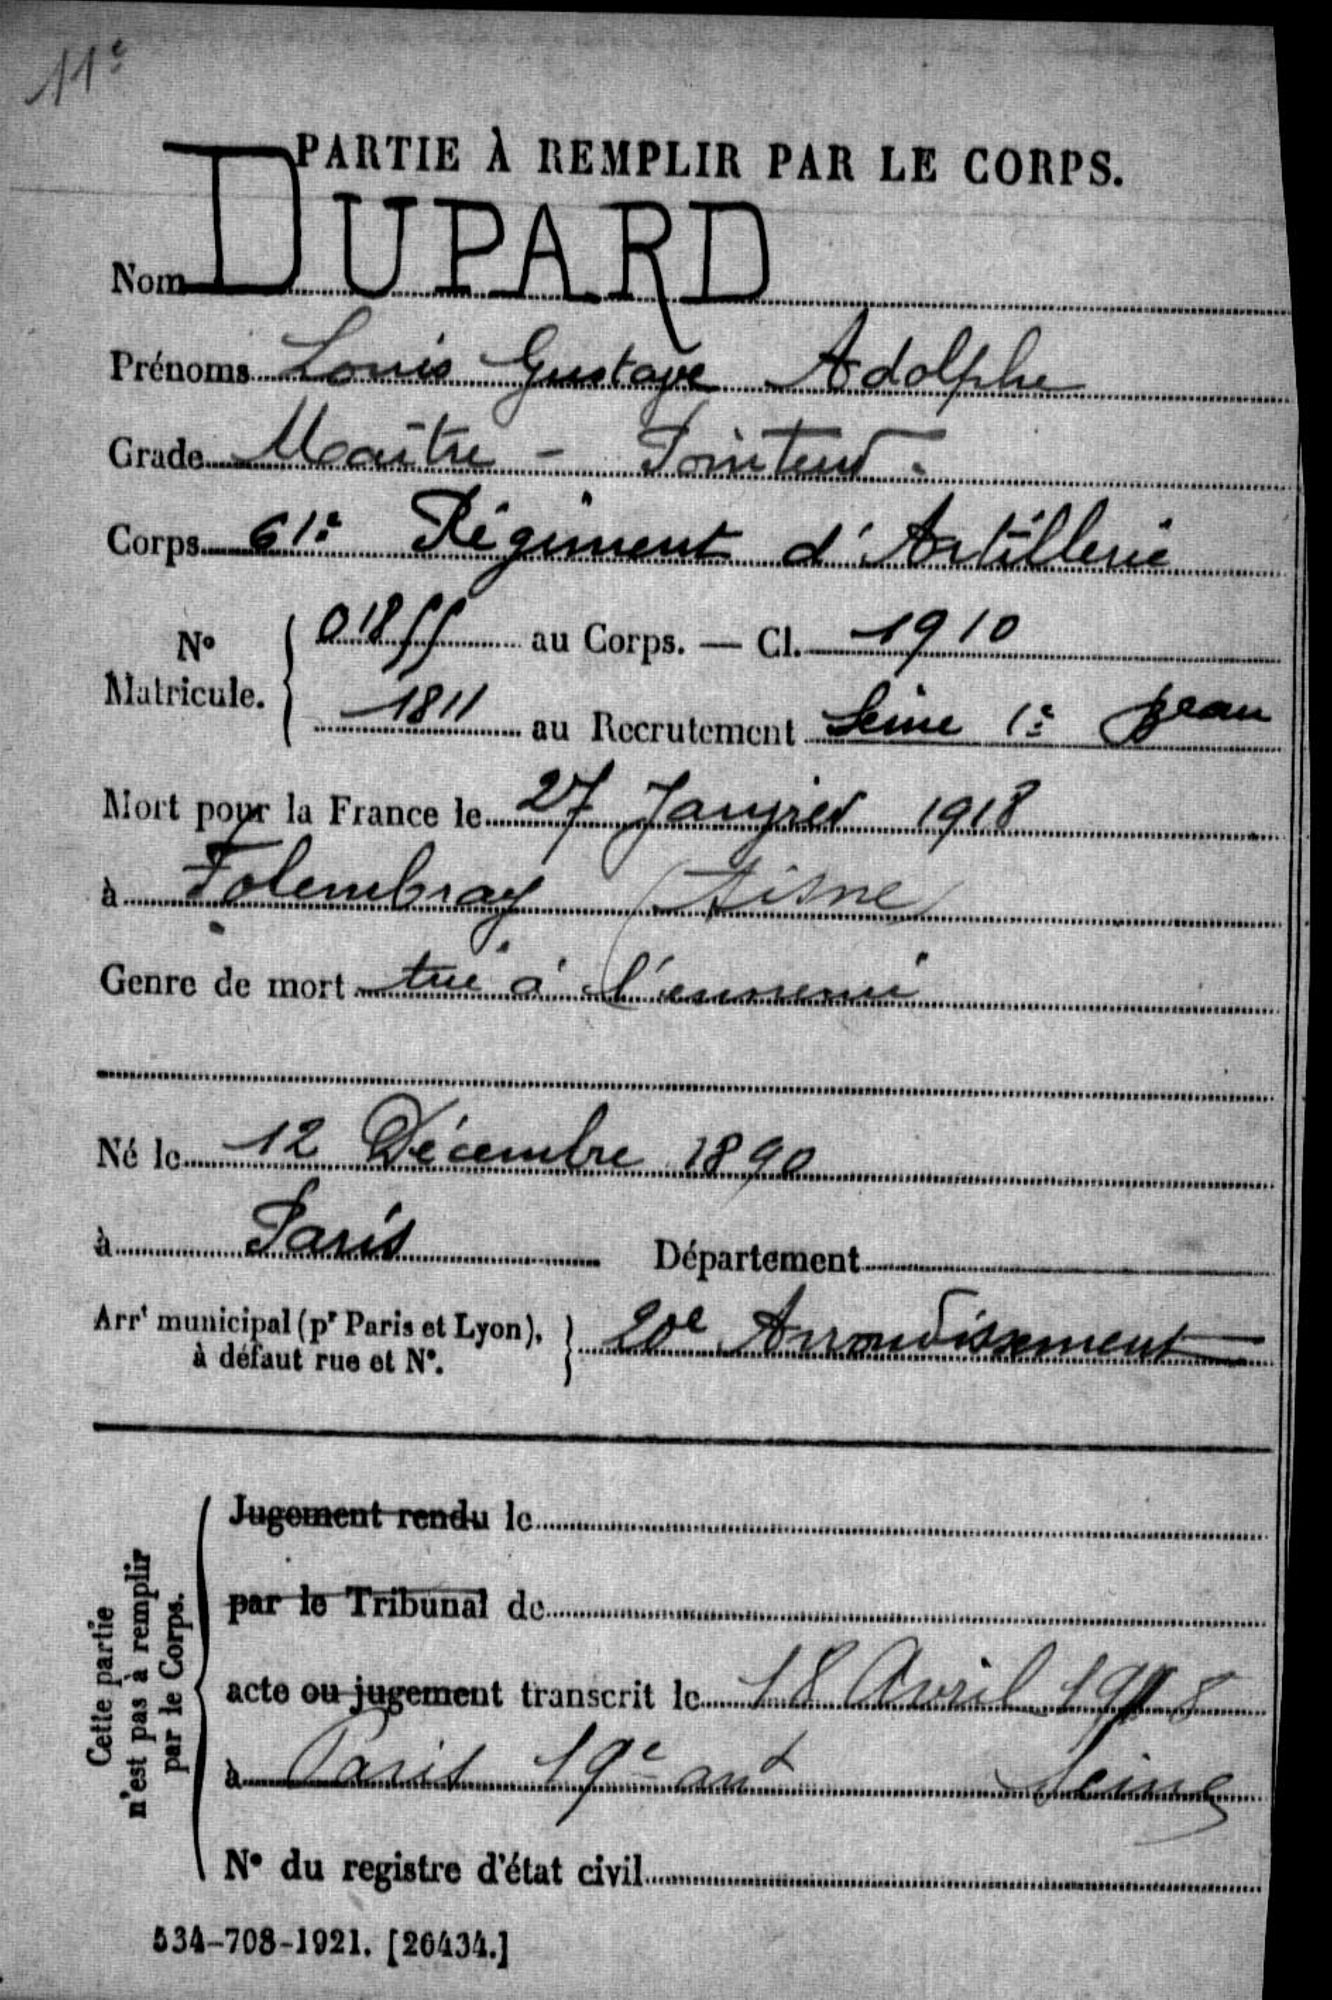 11e
PARTIE À REMPLIR PAR LE CORPS.
Nom DUPARD
Prénoms Louis Gustave Adolphe
Grade Maître - Pointeur.
Corps 61e Régiment d'Artillerie
N° Matricule. { 01855 au Corps. — Cl. 1910
1811 au Recrutement Seine 1er Beau
Mort pour la France le 27 Janvier 1918
à Folembray (Aisne)
Genre de mort tué à l'ennemi
Né le 12 Décembre 1890
à Paris Département
Arrt municipal (pr Paris et Lyon), } 20e Arrondissement
à défaut rue et N°.
Cette partie
n'est pas à remplir
par le Corps.
Jugement rendu le
par le Tribunal de
acte ou jugement transcrit le 18 Avril 1918
à Paris 19e arrt Seine
N° du registre d'état civil
534-708-1921. [26434.]